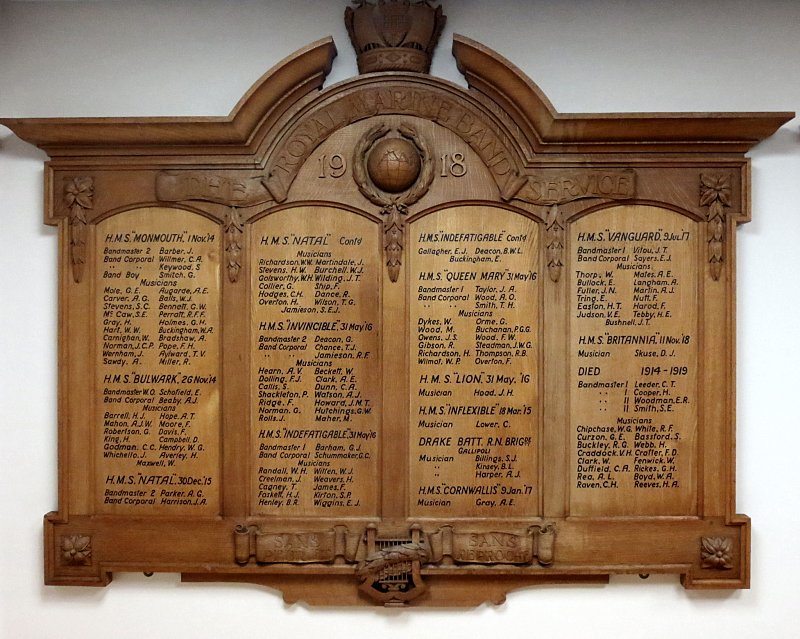 THE ROYAL MARINE BAND SERVICE
1918
H.M.S. "MONMOUTH," 1 Nov. '14
Bandmaster 2 Barber, J.
Band Corporal Willmer, C.A.
" " Keywood, S
Band Boy Smitch, G.
Musicians
Mole, G.E. Augarde, A.E.
Carver, A.G. Balls, W.J.
Stevens, S.C. Bennett, C.W.
Mc. Caw, S.E. Perratt, R.F.F.
Gray, H. Holmes, G.H.
Hart, W.W. Buckingham, W.A.
Carnighan, W. Bradshaw, A.
Norman, J.C.P. Pope, F.H.
Wernham, J. Aylward, T.V.
Sawdy, A. Miller, R.
H.M.S. "BULWARK," 26 Nov. 14
Bandmaster W.O. Schofield, E.
Band Corporal Beaby, A.J.
Musicians
Barrell, H.J. Hope, A.T.
Mahon, A.J.W Moore, F.
Robertson, G. Davis, F.
King, H. Campbell, D.
Godman, C.C. Hendry, W.G.
Whichello, J. Averley, H.
Maxwell, W.
H.M.S. "NATAL" 30 Dec. '15
Bandmaster 2 Parker, A.G.
Band Corporal Harrison, J.A.
H.M.S. "NATAL" Contd
Musicians
Richardson, W.W. Martindale, J.
Stevens, H.W. Burchell, W.J.
Golsworthy, W.H. Wilding, J.T.
Collier, G. Ship, F.
Hodges, C.H. Dance, R.
Overton, H. Wilson, T.G.
Jamieson, S.E.J.
H.M.S. "INVINCIBLE," 31 May '16
Bandmaster 2 Deacon, G.
Band Corporal Chance, T.J.
" " Jamieson, R.F.
Musicians
Hearn, A.V. Beckett, W.
Dolling, F.J. Clark, A.E.
Callis, S. Dunn, C.A.
Shackleton, P. Watson, A.J.
Ridge, F. Howard, J.M.T.
Norman, G. Hutchings, G.W.
Rolls, J. Maher, M.
H.M.S. "INDEFATIGABLE," 31 May '16
Bandmaster 1 Barham, G.J.
Band Corporal Schummaker, G.C.
Musicians
Randall, W.H. Witten, W.J.
Creelman, J. Weavers, H.
Cagney, T. James, F.
Foxkett, H.J. Kirton, S.P.
Henley, B.R. Wiggins, E.J.
H.M.S. "INDEFATIGABLE" Contd
Gallagher, E.J. Deacon, B.W.L.
Buckingham, E.
H.M.S. "QUEEN MARY" 31 May '16
Bandmaster 1 Taylor, J.A.
Band Corporal Wood, A.O.
" " Smith, T.H.
Musicians
Dykes, W. Orme, G.
Wood, M. Buchanan, P.G.G.
Owens, J.S. Wood, F.W.
Gibson, R. Steadman, J.W.G.
Richardson, H. Thompson, R.B.
Wilmot, W.P. Overton, F.
H.M.S. "LION" 31 May, '16
Musician Hood, J.H.
H.M.S. "INFLEXIBLE" 18 Mar. '15
Musician Lower, C.
DRAKE BATT. R.N. BRIG.
GALLIPOLI
Musician Billings, S.J.
" Kinsey, B.L.
" Harper, A.J.
H.M.S. "CORNWALLIS" 9 Jan. '17
Musician Gray, A.E.
H.M.S. "VANGUARD," 9 July '17
Bandmaster 1 Vitou, J.T.
Band Corporal Sayers, E.J.
Musicians
Thorp, W. Males, A.E.
Bullock, E. Langham, A.
Fuller, J.N. Martin, A.J.
Tring, E. Nutt, F.
Easton, H.T. Harod, F.
Judson, V.E. Tebby, H.E.
Bushnell, J.T.
H.M.S. "BRITANNIA," 11 Nov. '18
Musician Skuse, D.J.
DIED 1914-1919
Bandmaster 1 Leeder, C.T.
" 1 Cooper, H.
" II Woodman, E.R.
" II Smith, S.E.
Musicians
Chipchase, W.G. While, R.F.
Curzon, G.E. Bassford, S.
Buckley, R.G. Webb, H.
Craddock, V.H. Craffer, F.D.
Clark, W. Fenwick, W.
Duffield, C.A. Rickes, G.H.
Rea, A.L. Boyd, W.A.
Raven, C.H. Reeves, H.A.
SANS PEUR ET SANS REPROCHE